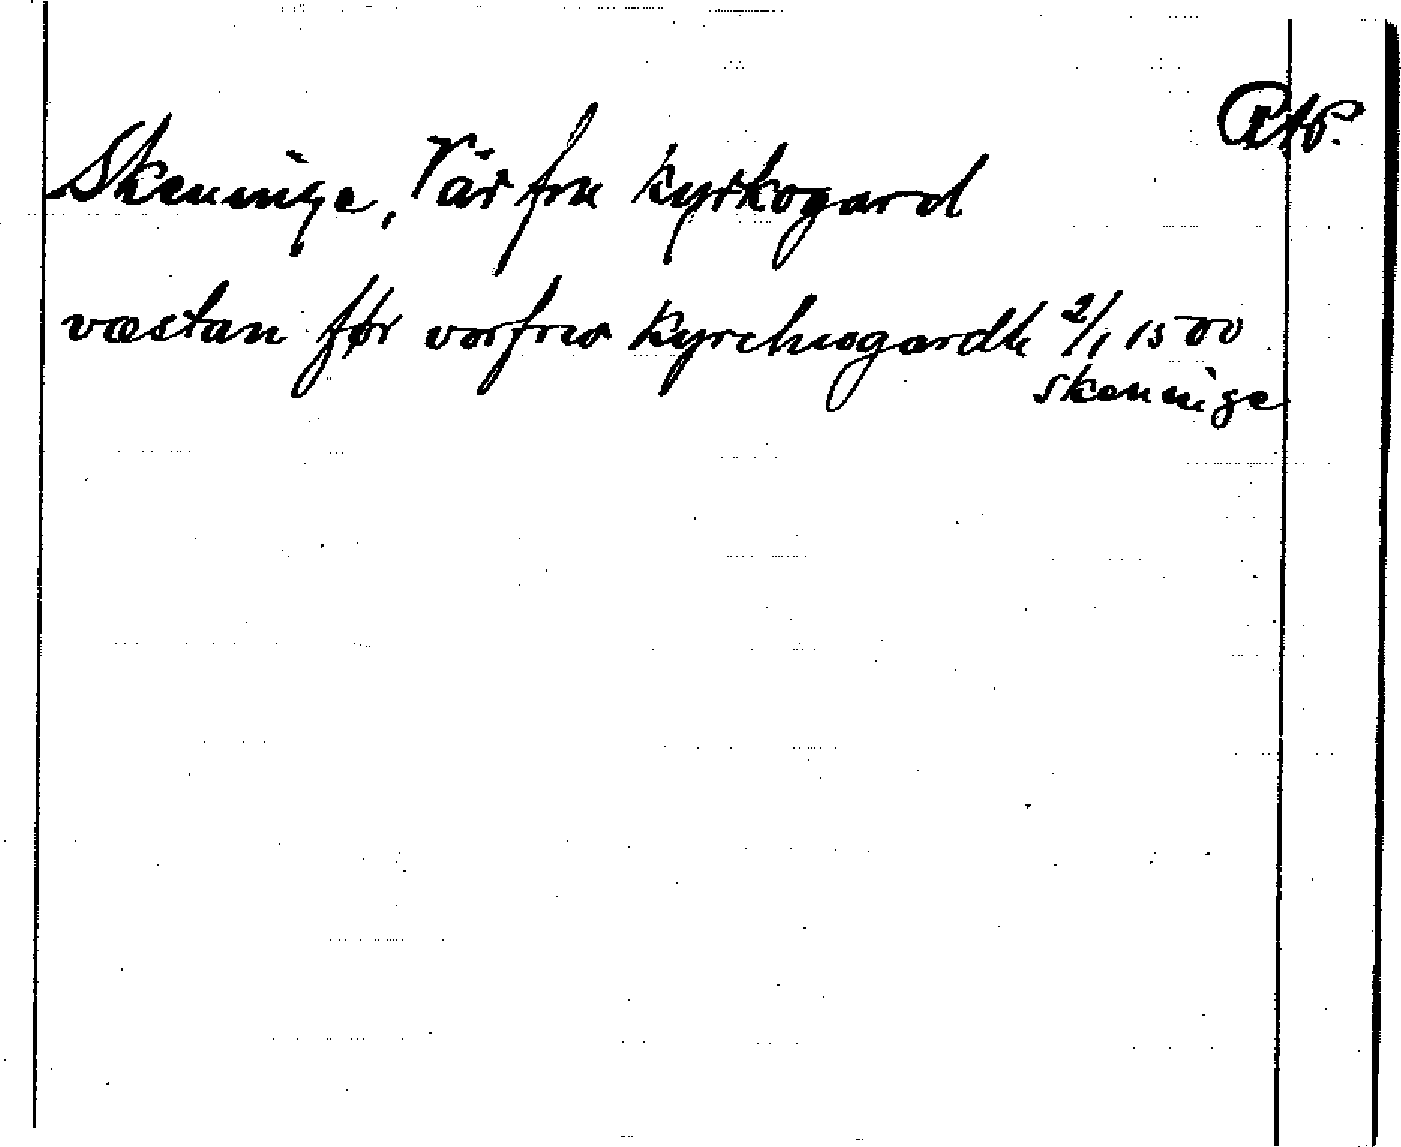 RAP.
Skeninge, Vår fru kyrkogård
væstan før vorfrwo kyrchiogardh 2/1 1500
Skeninge